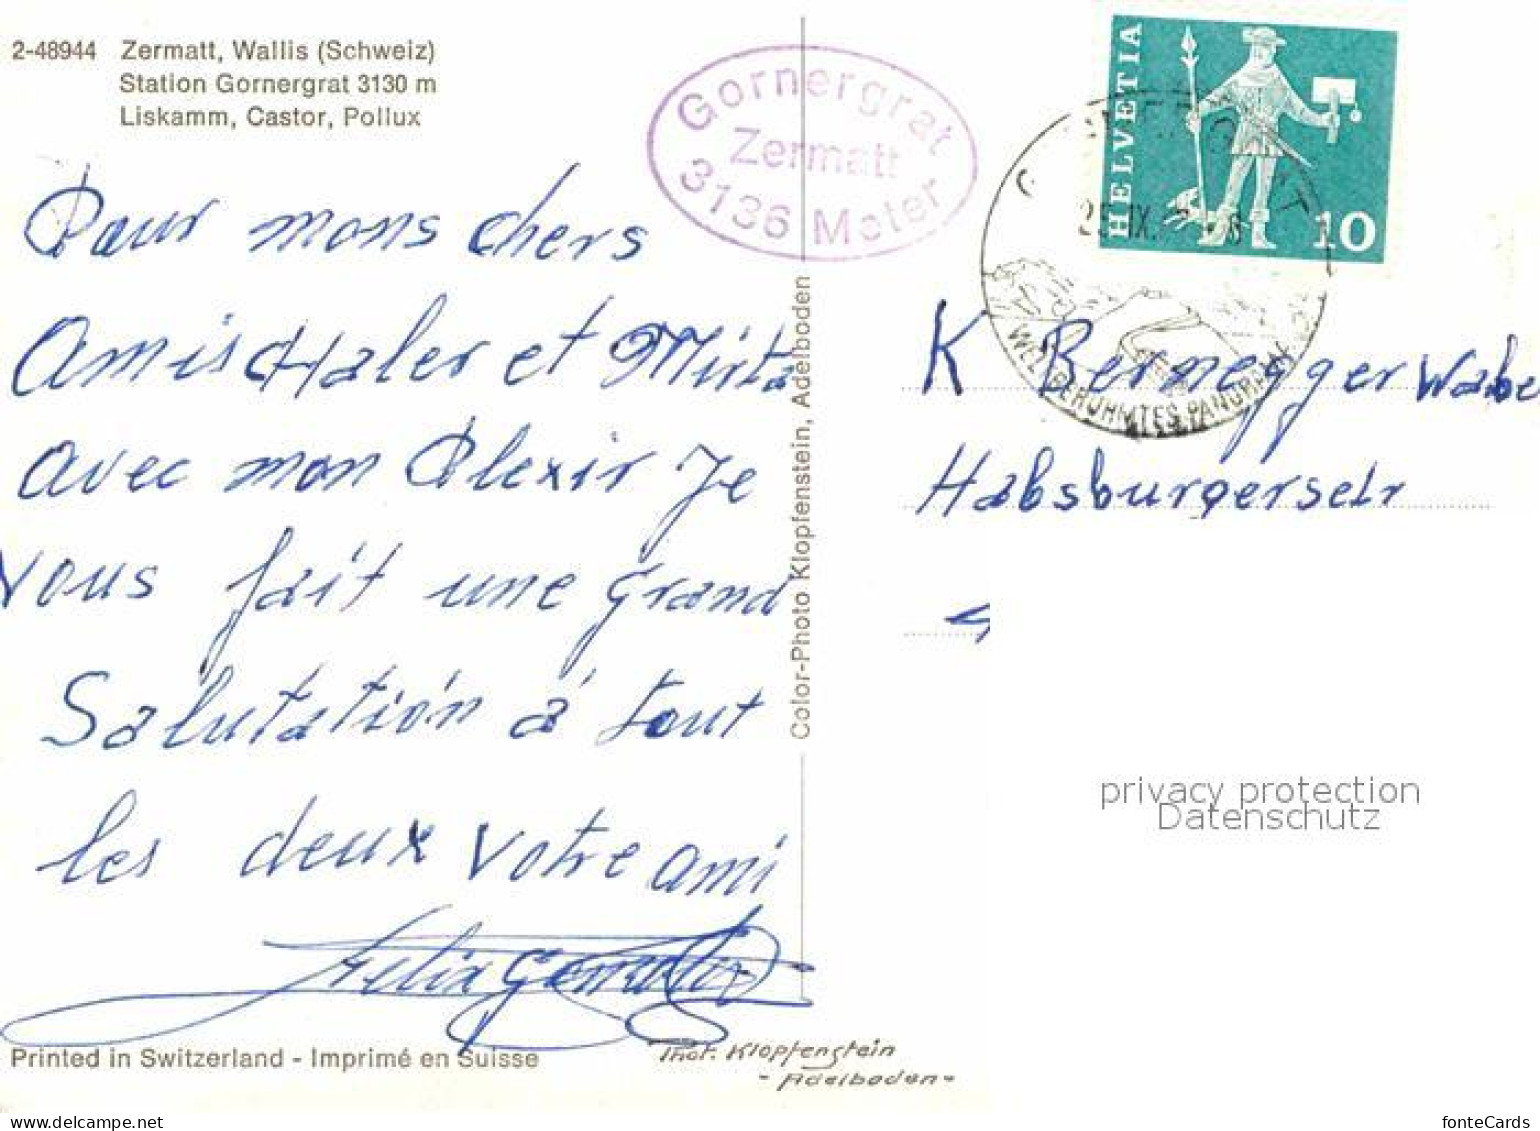 2-48944 Zermatt, Wallis (Schweiz)
Station Gornergrat 3130 m
Liskamm, Castor, Pollux
Gornergrat
Zermatt
3136 Meter
HELVETIA
10
WELTBERÜHMTES PANORAMA
Pour mons chers
Amis Haler et Mirta
avec mon Plexir Je
vous fait une grand
Salutatión á tout
les deux votre ami
Felix
K Bernegger Wabe
Habsburgerselr
Color-Photo Klopfenstein, Adelboden
privacy protection
Datenschutz
Printed in Switzerland - Imprimé en Suisse
Phot. Klopfenstein
- Adelboden -
www.delcampe.net
fonteCards